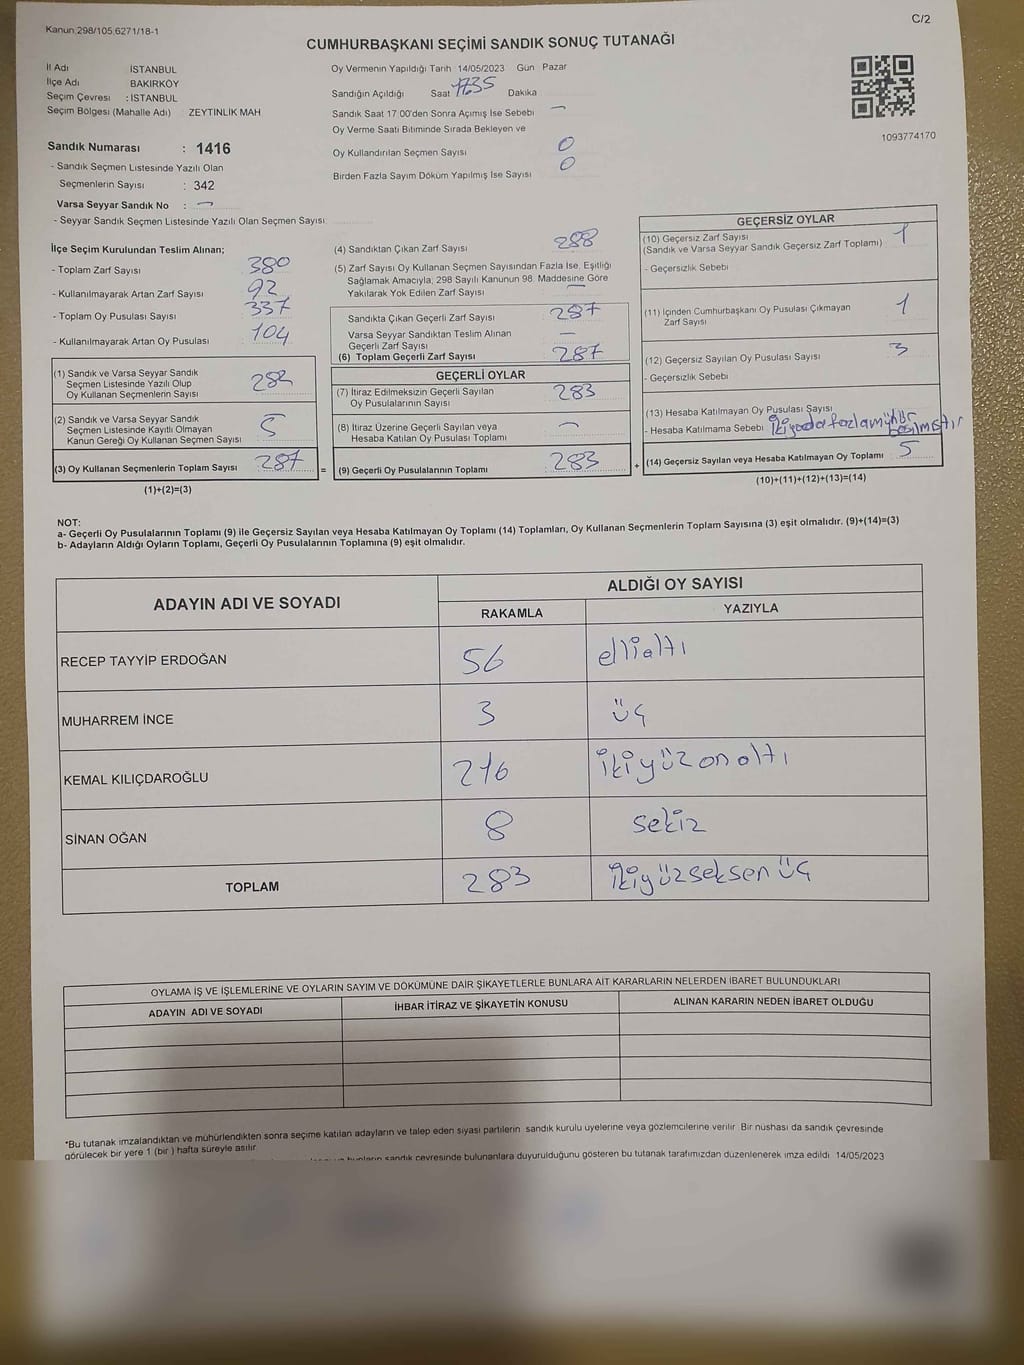 Kanun 298/105,6271/18-1
C/2
CUMHURBAŞKANI SEÇİMİ SANDIK SONUÇ TUTANAĞI
İl Adı İSTANBUL
İlçe Adı BAKIRKÖY
Seçim Çevresi : İSTANBUL
Seçim Bölgesi (Mahalle Adı) ZEYTİNLİK MAH
Sandık Numarası : 1416
- Sandık Seçmen Listesinde Yazılı Olan
Seçmenlerin Sayısı : 342
Varsa Seyyar Sandık No : —
- Seyyar Sandık Seçmen Listesinde Yazılı Olan Seçmen Sayısı
Oy Vermenin Yapıldığı Tarih 14/05/2023 Gün Pazar
Sandığın Açıldığı Saat 17.35 Dakika
Sandık Saat 17:00'den Sonra Açımış İse Sebebi —
Oy Verme Saati Bitiminde Sırada Bekleyen ve
Oy Kullandırılan Seçmen Sayısı 0
Birden Fazla Sayım Döküm Yapılmış İse Sayısı 0
1093774170
İlçe Seçim Kurulundan Teslim Alınan;
- Toplam Zarf Sayısı 380
- Kullanılmayarak Artan Zarf Sayısı 92
- Toplam Oy Pusulası Sayısı 337
- Kullanılmayarak Artan Oy Pusulası 104
(1) Sandık ve Varsa Seyyar Sandık
Seçmen Listesinde Yazılı Olup
Oy Kullanan Seçmenlerin Sayısı 282
(2) Sandık ve Varsa Seyyar Sandık
Seçmen Listesinde Kayıtlı Olmayan
Kanun Gereği Oy Kullanan Seçmen Sayısı 5
(3) Oy Kullanan Seçmenlerin Toplam Sayısı 287 =
(1)+(2)=(3)
(4) Sandıktan Çıkan Zarf Sayısı 288
(5) Zarf Sayısı Oy Kullanan Seçmen Sayısından Fazla İse, Eşitliği
Sağlamak Amacıyla; 298 Sayılı Kanunun 98. Maddesine Göre
Yakılarak Yok Edilen Zarf Sayısı —
Sandıkta Çıkan Geçerli Zarf Sayısı 287
Varsa Seyyar Sandıktan Teslim Alınan
Geçerli Zarf Sayısı —
(6) Toplam Geçerli Zarf Sayısı 287
GEÇERLİ OYLAR
(7) İtiraz Edilmeksizin Geçerli Sayılan
Oy Pusulalarının Sayısı 283
(8) İtiraz Üzerine Geçerli Sayılan veya
Hesaba Katılan Oy Pusulası Toplamı —
(9) Geçerli Oy Pusulalarının Toplamı 283 +
GEÇERSİZ OYLAR
(10) Geçersiz Zarf Sayısı
(Sandık ve Varsa Seyyar Sandık Geçersiz Zarf Toplamı) 1
- Geçersizlik Sebebi
(11) İçinden Cumhurbaşkanı Oy Pusulası Çıkmayan
Zarf Sayısı 1
(12) Geçersiz Sayılan Oy Pusulası Sayısı 3
- Geçersizlik Sebebi
(13) Hesaba Katılmayan Oy Pusulası Sayısı
- Hesaba Katılmama Sebebi İkiyadafazlamühür
basılmıştır
(14) Geçersiz Sayılan veya Hesaba Katılmayan Oy Toplamı 5
(10)+(11)+(12)+(13)=(14)
NOT:
a- Geçerli Oy Pusulalarının Toplamı (9) ile Geçersiz Sayılan veya Hesaba Katılmayan Oy Toplamı (14) Toplamları, Oy Kullanan Seçmenlerin Toplam Sayısına (3) eşit olmalıdır. (9)+(14)=(3)
b- Adayların Aldığı Oyların Toplamı, Geçerli Oy Pusulalarının Toplamına (9) eşit olmalıdır.
ADAYIN ADI VE SOYADI ALDIĞI OY SAYISI
RAKAMLA YAZIYLA
RECEP TAYYİP ERDOĞAN 56 elli altı
MUHARREM İNCE 3 üç
KEMAL KILIÇDAROĞLU 216 ikiyüz on altı
SİNAN OĞAN 8 sekiz
TOPLAM 283 ikiyüzseksen üç
OYLAMA İŞ VE İŞLEMLERİNE VE OYLARIN SAYIM VE DÖKÜMÜNE DAİR ŞİKAYETLERLE BUNLARA AİT KARARLARIN NELERDEN İBARET BULUNDUKLARI
ADAYIN ADI VE SOYADI İHBAR İTİRAZ VE ŞİKAYETİN KONUSU ALINAN KARARIN NEDEN İBARET OLDUĞU
*Bu tutanak imzalandıktan ve mühürlendikten sonra seçime katılan adayların ve talep eden siyasi partilerin sandık kurulu üyelerine veya gözlemcilerine verilir. Bir nüshası da sandık çevresinde
görülecek bir yere 1 (bir ) hafta süreyle asılır.
sandık çevresinde bulunanlara duyurulduğunu gösteren bu tutanak tarafımızdan düzenlenerek imza edildi 14/05/2023